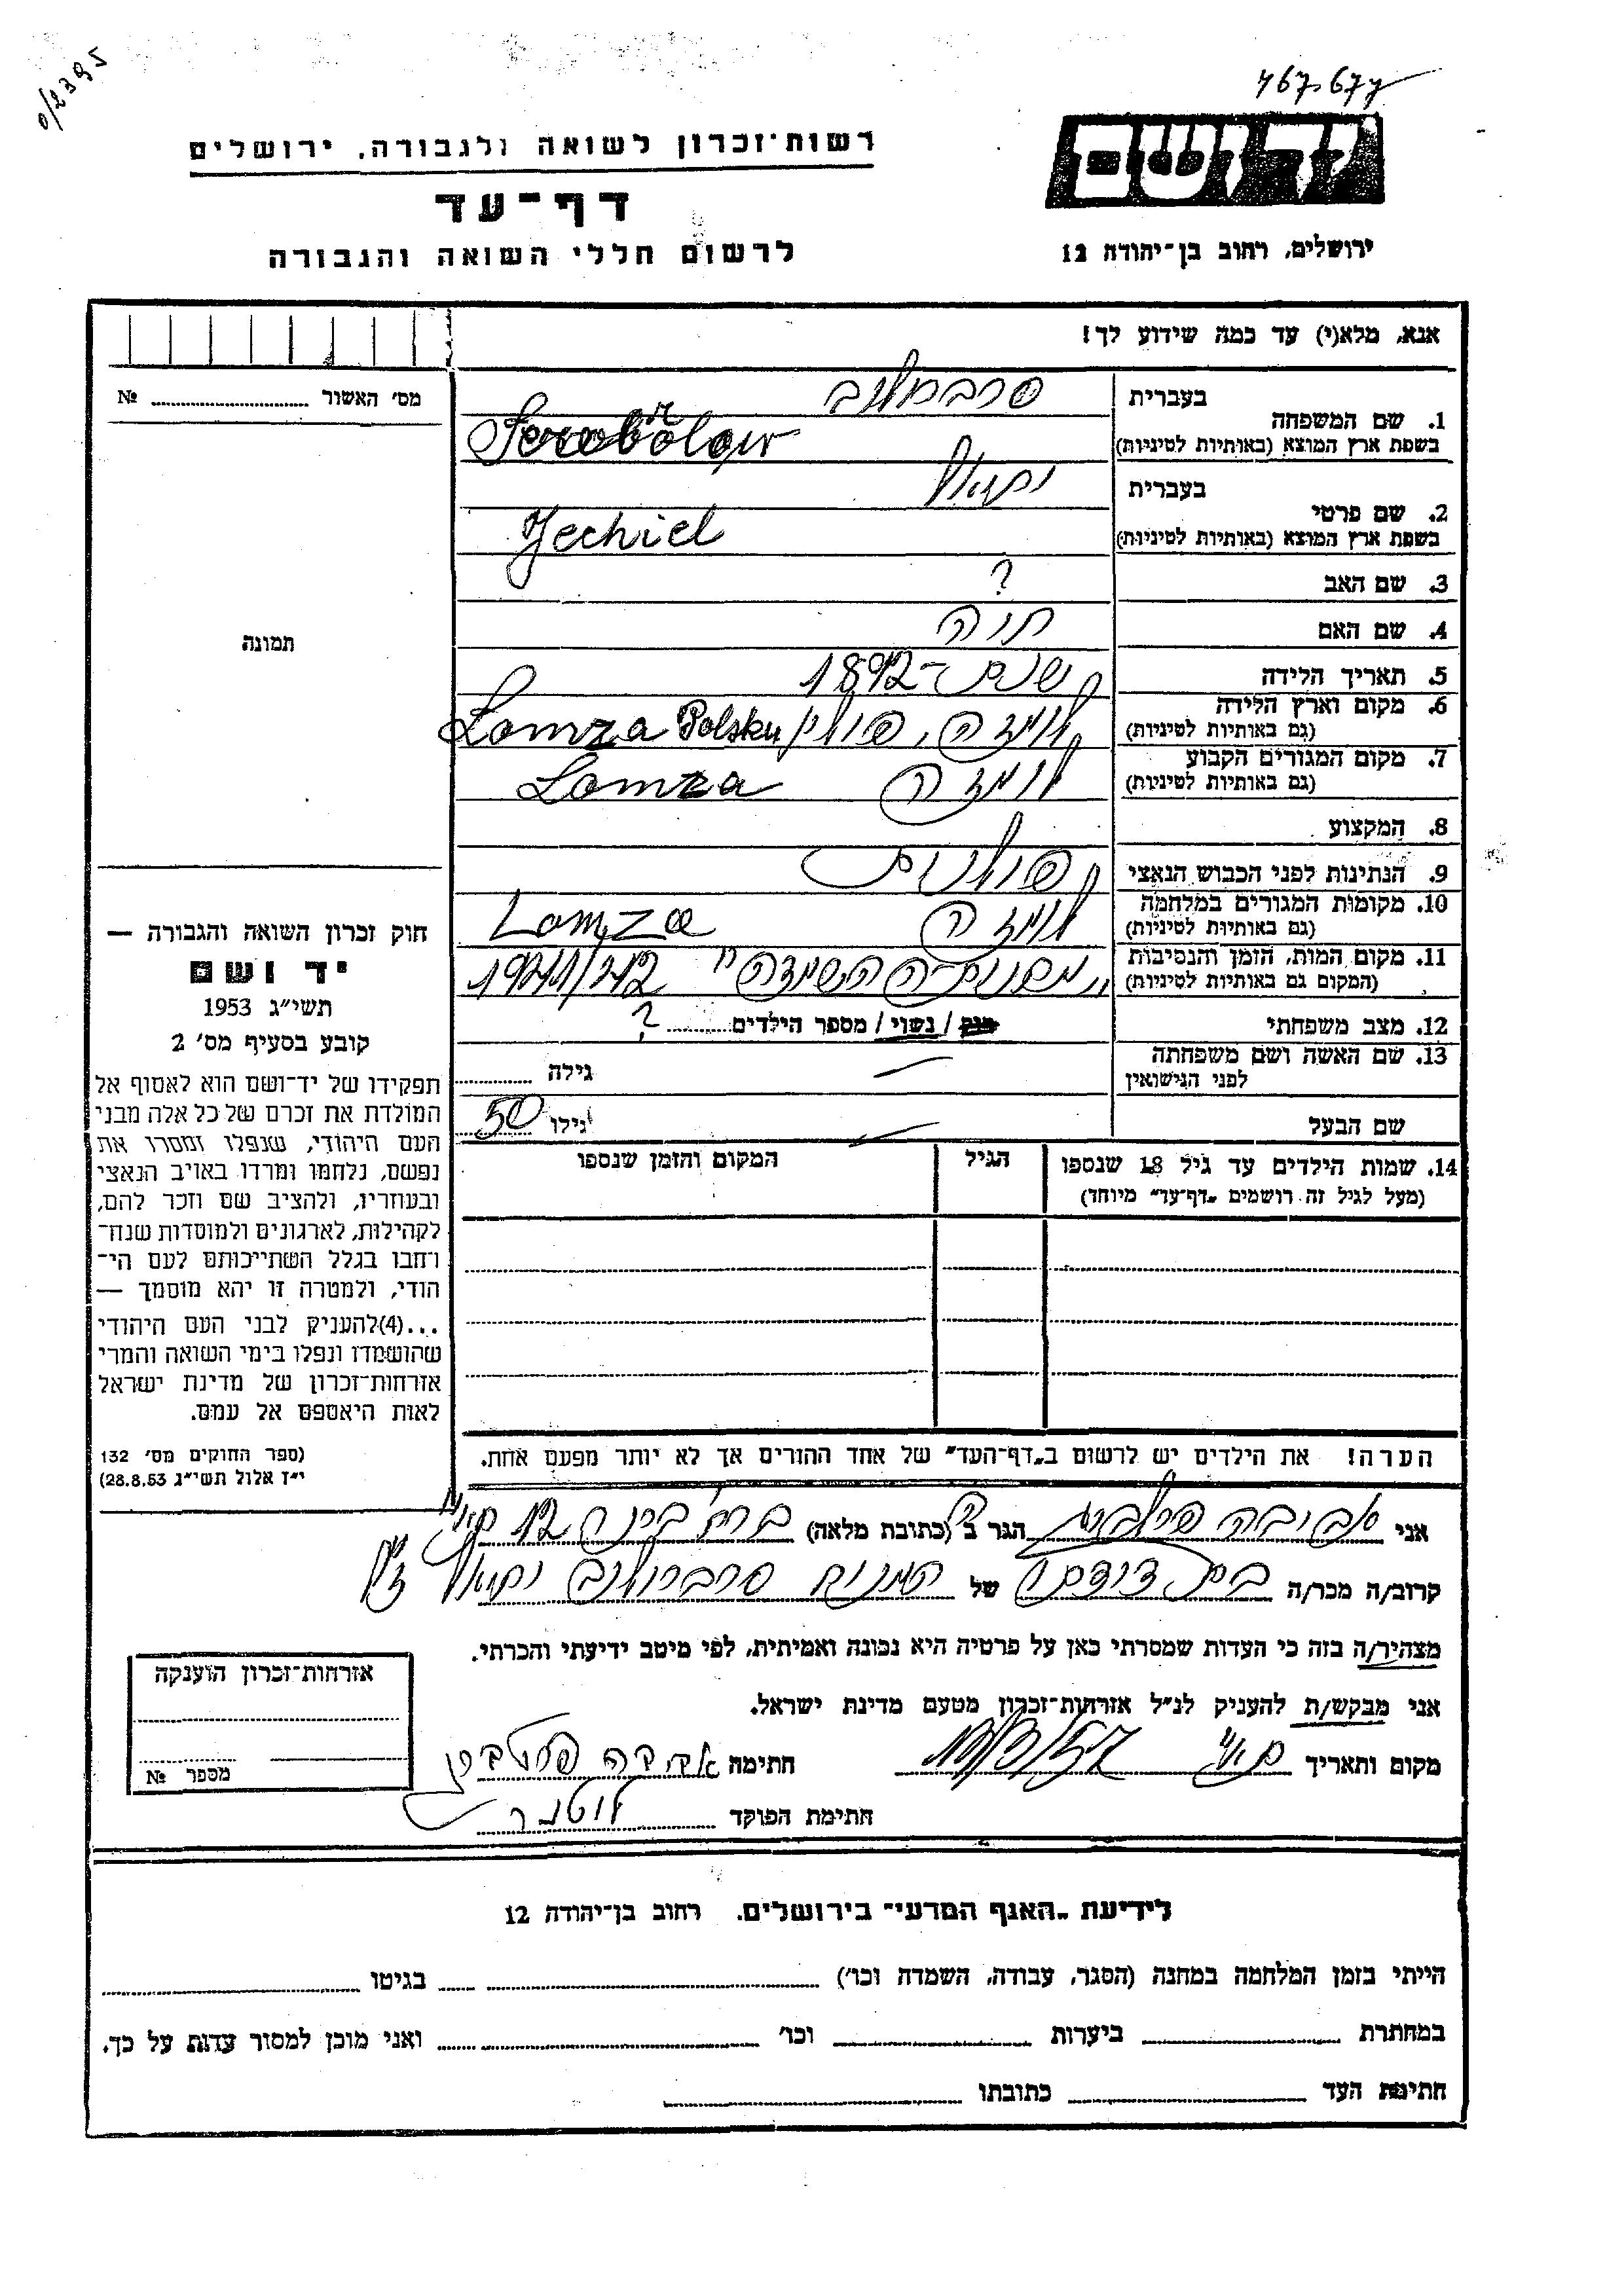 0/2395
467.677
ידושם
ירושלים, רחוב בן־יהודה 12
רשות־זכרון לשואה ולגבורה, ירושלים
דף־עד
לרשום חללי השואה והגבורה
אנא, מלא(י) עד כמה שידוע לך!
מס׳ האשור № 
1. שם המשפחה
בעברית
בשפת ארץ המוצא (באותיות לטיניות)
2. שם פרטי
בעברית יחיאל
בשפת ארץ המוצא (באותיות לטיניות) Jechiel
3. שם האב ?
4. שם האם חוה
5. תאריך הלידה שנת - 1892
6. מקום וארץ הלידה לומזה, פולין Lomza
(גם באותיות לטיניות)
7. מקום המגורים הקבוע לומזה Lomza
(גם באותיות לטיניות)
8. המקצוע
9. הנתינות לפני הכבוש הנאצי פולנית
10. מקומות המגורים במלחמה לומזה Lomza
(גם באותיות לטיניות)
11. מקום המות, הזמן והנסיבות "מחנות-ההשמדה"
(המקום גם באותיות לטיניות)
12. מצב משפחתי רוק / נשוי / מספר הילדים ?
13. שם האשה ושם משפחתה — גילה
לפני הנישואין
שם הבעל — גילו 50
14. שמות הילדים עד גיל 18 שנספו
(מעל לגיל זה רושמים „דף־עד״ מיוחד)
הגיל
המקום והזמן שנספו
הערה! את הילדים יש לרשום ב„דף־העד״ של אחד ההורים אך לא יותר מפעם אחת.
תמונה
חוק זכרון השואה והגבורה —
יד ושם
תשי״ג 1953
קובע בסעיף מס׳ 2
תפקידו של יד־ושם הוא לאסוף אל
המולדת את זכרם של כל אלה מבני
העם היהודי, שנפלו ומסרו את
נפשם, נלחמו ומרדו באויב הנאצי
ובעוזריו, ולהציב שם וזכר להם,
לקהילות, לארגונים ולמוסדות שנח־
רחבו בגלל השתייכותם לעם הי־
הודי, ולמטרה זו יהא מוסמך —
...(4)להעניק לבני העם היהודי
שהושמדו ונפלו בימי השואה והמרי
אזרחות־זכרון של מדינת ישראל
לאות היאספם אל עמם.
(ספר החוקים מס׳ 132
י״ז אלול תשי״ג 28.8.53)
אני אביבה הגר ב (כתובת מלאה)
קרוב/ה מכר/ה בת דודתו של המנוח יחיאל ז"ל
מצהיר/ה בזה כי העדות שמסרתי כאן על פרטיה היא נכונה ואמיתית, לפי מיטב ידיעתי והכרתי.
אני מבקש/ת להעניק לנ״ל אזרחות־זכרון מטעם מדינת ישראל.
מקום ותאריך חתימה
חתימת הפוקד
אזרחות־זכרון הוענקה
מספר №
לידיעת „האגף המדעי״ בירושלים. רחוב בן־יהודה 12
הייתי בזמן המלחמה במחנה (הסגר, עבודה, השמדה וכו׳) בגיטו
במחתרת ביערות וכו׳ ואני מוכן למסור עדות על כך.
חתימת העד כתובתו